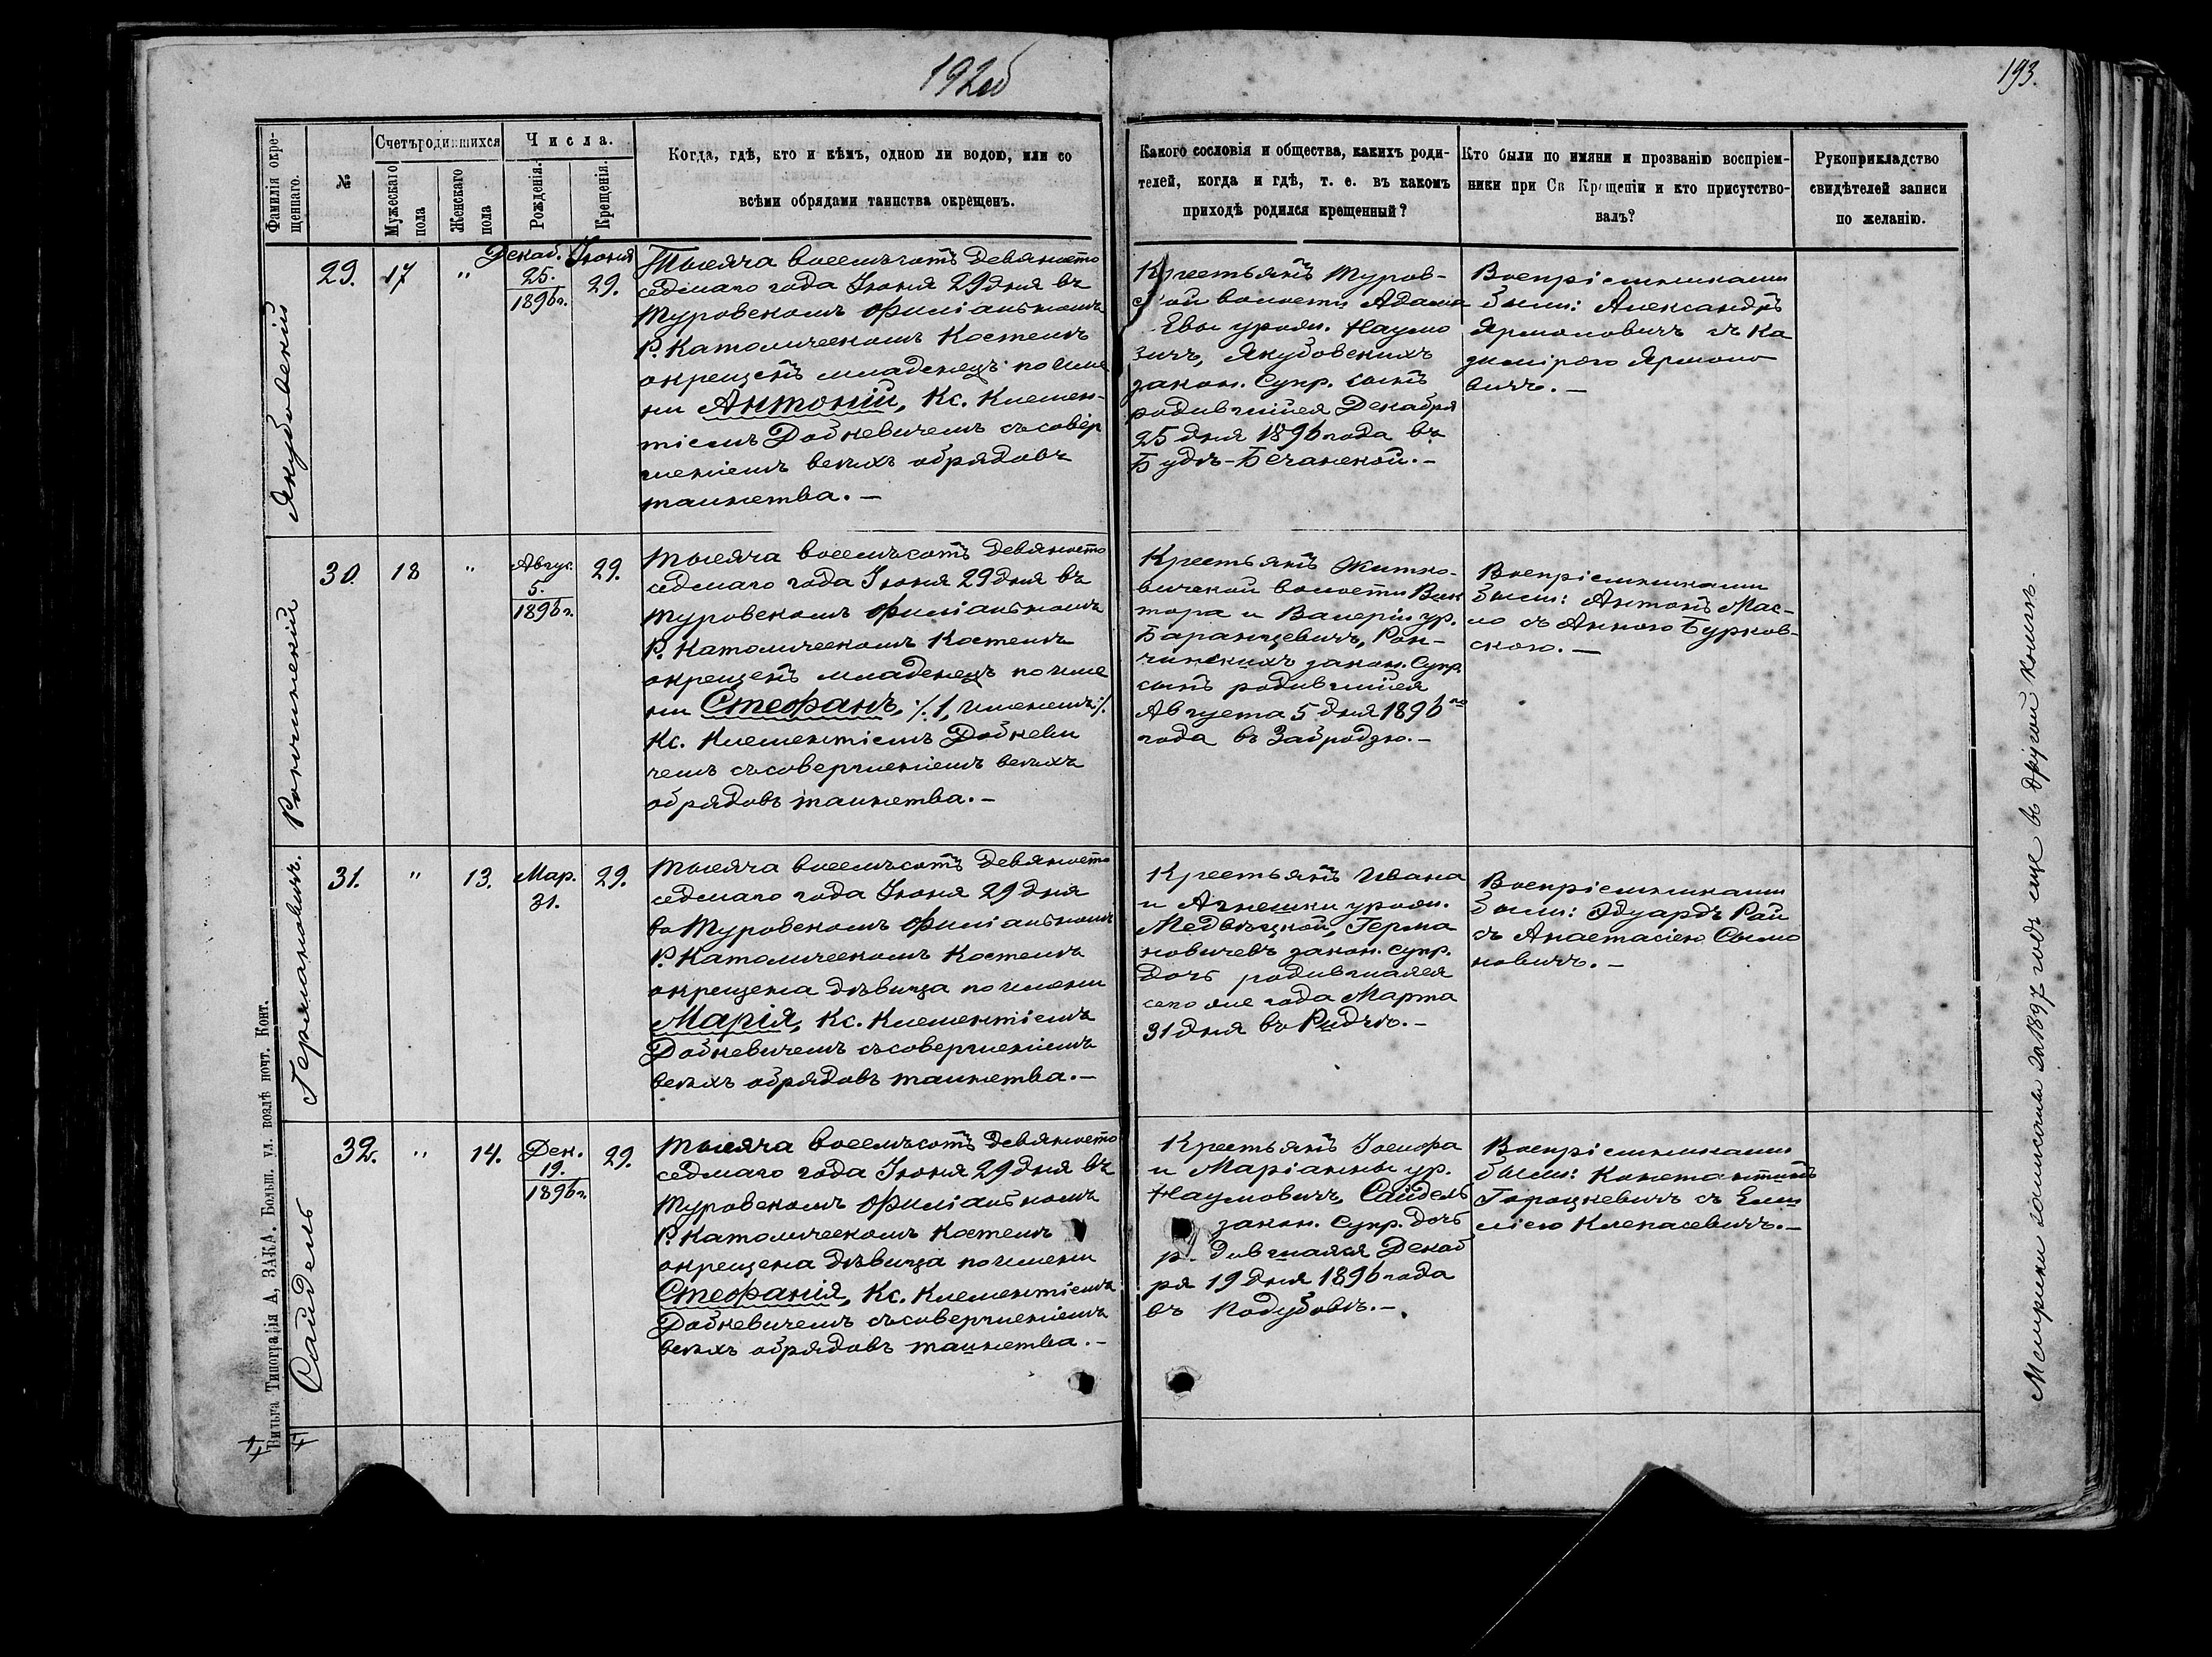 192об
193.
Фамилія окре-
щеннаго.
№
Счетъ родившихся
Мужескаго
пола
Женскаго
пола
Числа.
Рожденія.
Крещенія.
Когда, гдѣ, кто и кѣмъ, одною ли водою, или со
всѣми обрядами таинства окрещенъ.
Какого сословія и общества, какихъ роди-
телей, когда и гдѣ, т. е. въ какомъ
приходѣ родился крещенный?
Кто были по имяни и прозванію воспріем-
ники при Св Крещеніи и кто присутство-
валъ?
Рукоприкладство
свидѣтелей записи
по желанію.
Якубовскій
29.
17
"
Декаб.
25.
1896 г.
Іюня
29.
Тысяча восемьсотъ девяносто
седмаго года Іюня 29 дня въ
Туровскомъ Филіальномъ
Р. Католическомъ Костелѣ
окрещенъ младенецъ по име
ни Антоній, Кс. Клемен-
тіемъ Добкевичемъ съ совер
шеніемъ всѣхъ обрядовъ
таинства. —
Крестьянъ Туров-
ской волости Адама
Евы урожд. Наумо
вичъ, Якубовскихъ
закон. Супр. сынъ
родившійся Декабря
25 дня 1896 года въ
Будѣ-Бечанской. —
Воспріемниками
были: Александръ
Ярмоловичъ съ Ка
зимірою Ярмоло
вичъ. —
Рончинскій
30.
18
"
Авгус.
5.
1896 г.
29.
Тысяча восемьсотъ девяносто
седмаго года Іюня 29 дня въ
Туровскомъ Филіальномъ
Р. Католическомъ Костелѣ
окрещенъ младенецъ по име
ни Стефанъ, ·/. 1, именемъ ·/.
Кс. Клементіемъ Добкеви
чемъ съ совершеніемъ всѣхъ
обрядовъ таинства. —
Крестьянъ Житко-
вичской волости Вик
тора и Валеріи ур.
Баранцевичъ, Рон-
чинскихъ закон. Супр.
сынъ родившійся
Августа 5 дня 1896 го
года въ Забродзю. —
Воспріемниками
были: Антонъ Мас-
ло съ Анною Бурков-
скою. —
Германовичъ.
31.
"
13.
Мар.
31.
29.
Тысяча восемьсотъ девяносто
седмаго года Іюня 29 дня
въ Туровскомъ Филіальномъ
Р. Католическомъ Костелѣ
окрещена дѣвица по имени
Марія, Кс. Клементіемъ
Добкевичемъ съ совершеніемъ
всѣхъ обрядовъ таинства. —
Крестьянъ Ивана
и Агнешки урожд.
Медвѣцкой, Герма
новичевъ закон. супр.
дочь родившаяся
сего же года Марта
31 дня въ Ридчѣ. —
Воспріемниками
были: Эдуардъ Рай
съ Анастасіею Сымо
новичъ. —
Сайдель
32.
"
14.
Дек.
19.
1896 г.
29.
Тысяча восемьсотъ девяносто
седмаго года Іюня 29 дня въ
Туровскомъ Филіальномъ
Р. Католическомъ Костелѣ
окрещена дѣвица по имени
Стефанія, Кс. Клементіемъ
Добкевичемъ съ совершеніемъ
всѣхъ обрядовъ таинства. —
Крестьянъ Іосифа
и Маріанны ур.
Наумовичъ, Сайдель
закон. Супр. дочь
р дившаяся Декаб
ря 19 дня 1896 года
въ Подубовѣ. —
Воспріемниками
были: Константинъ
Горошкевичъ съ Еми
ліею Клепасевичъ. —
Вильна Типографія А, ЗАКА. Больш. ул. возлѣ почт. Конт.
Метрики записаны за 1897 годъ еще въ другой книгѣ.